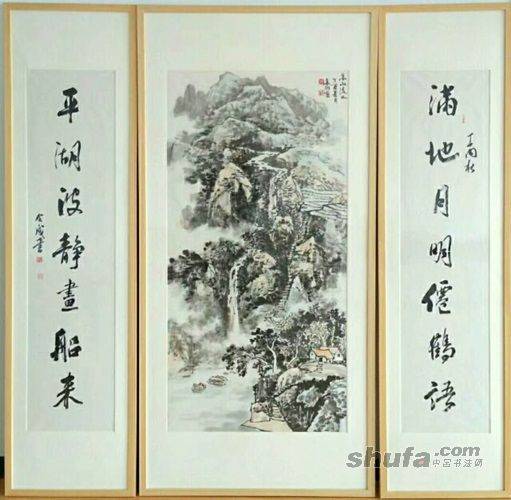 满地月明僊鹤语
丁酉秋
高山流水
平湖波静畫船来
shufa.com
中国书法网